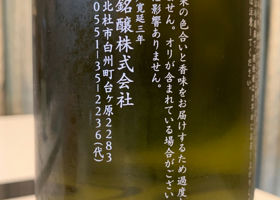 来の色合いと香味をお届けするため過度
せん。オリが含まれている場合がござい
影響ありません。
寛延三年
銘醸株式会社
北杜市白州町台ヶ原2283
0551-35-2236(代)